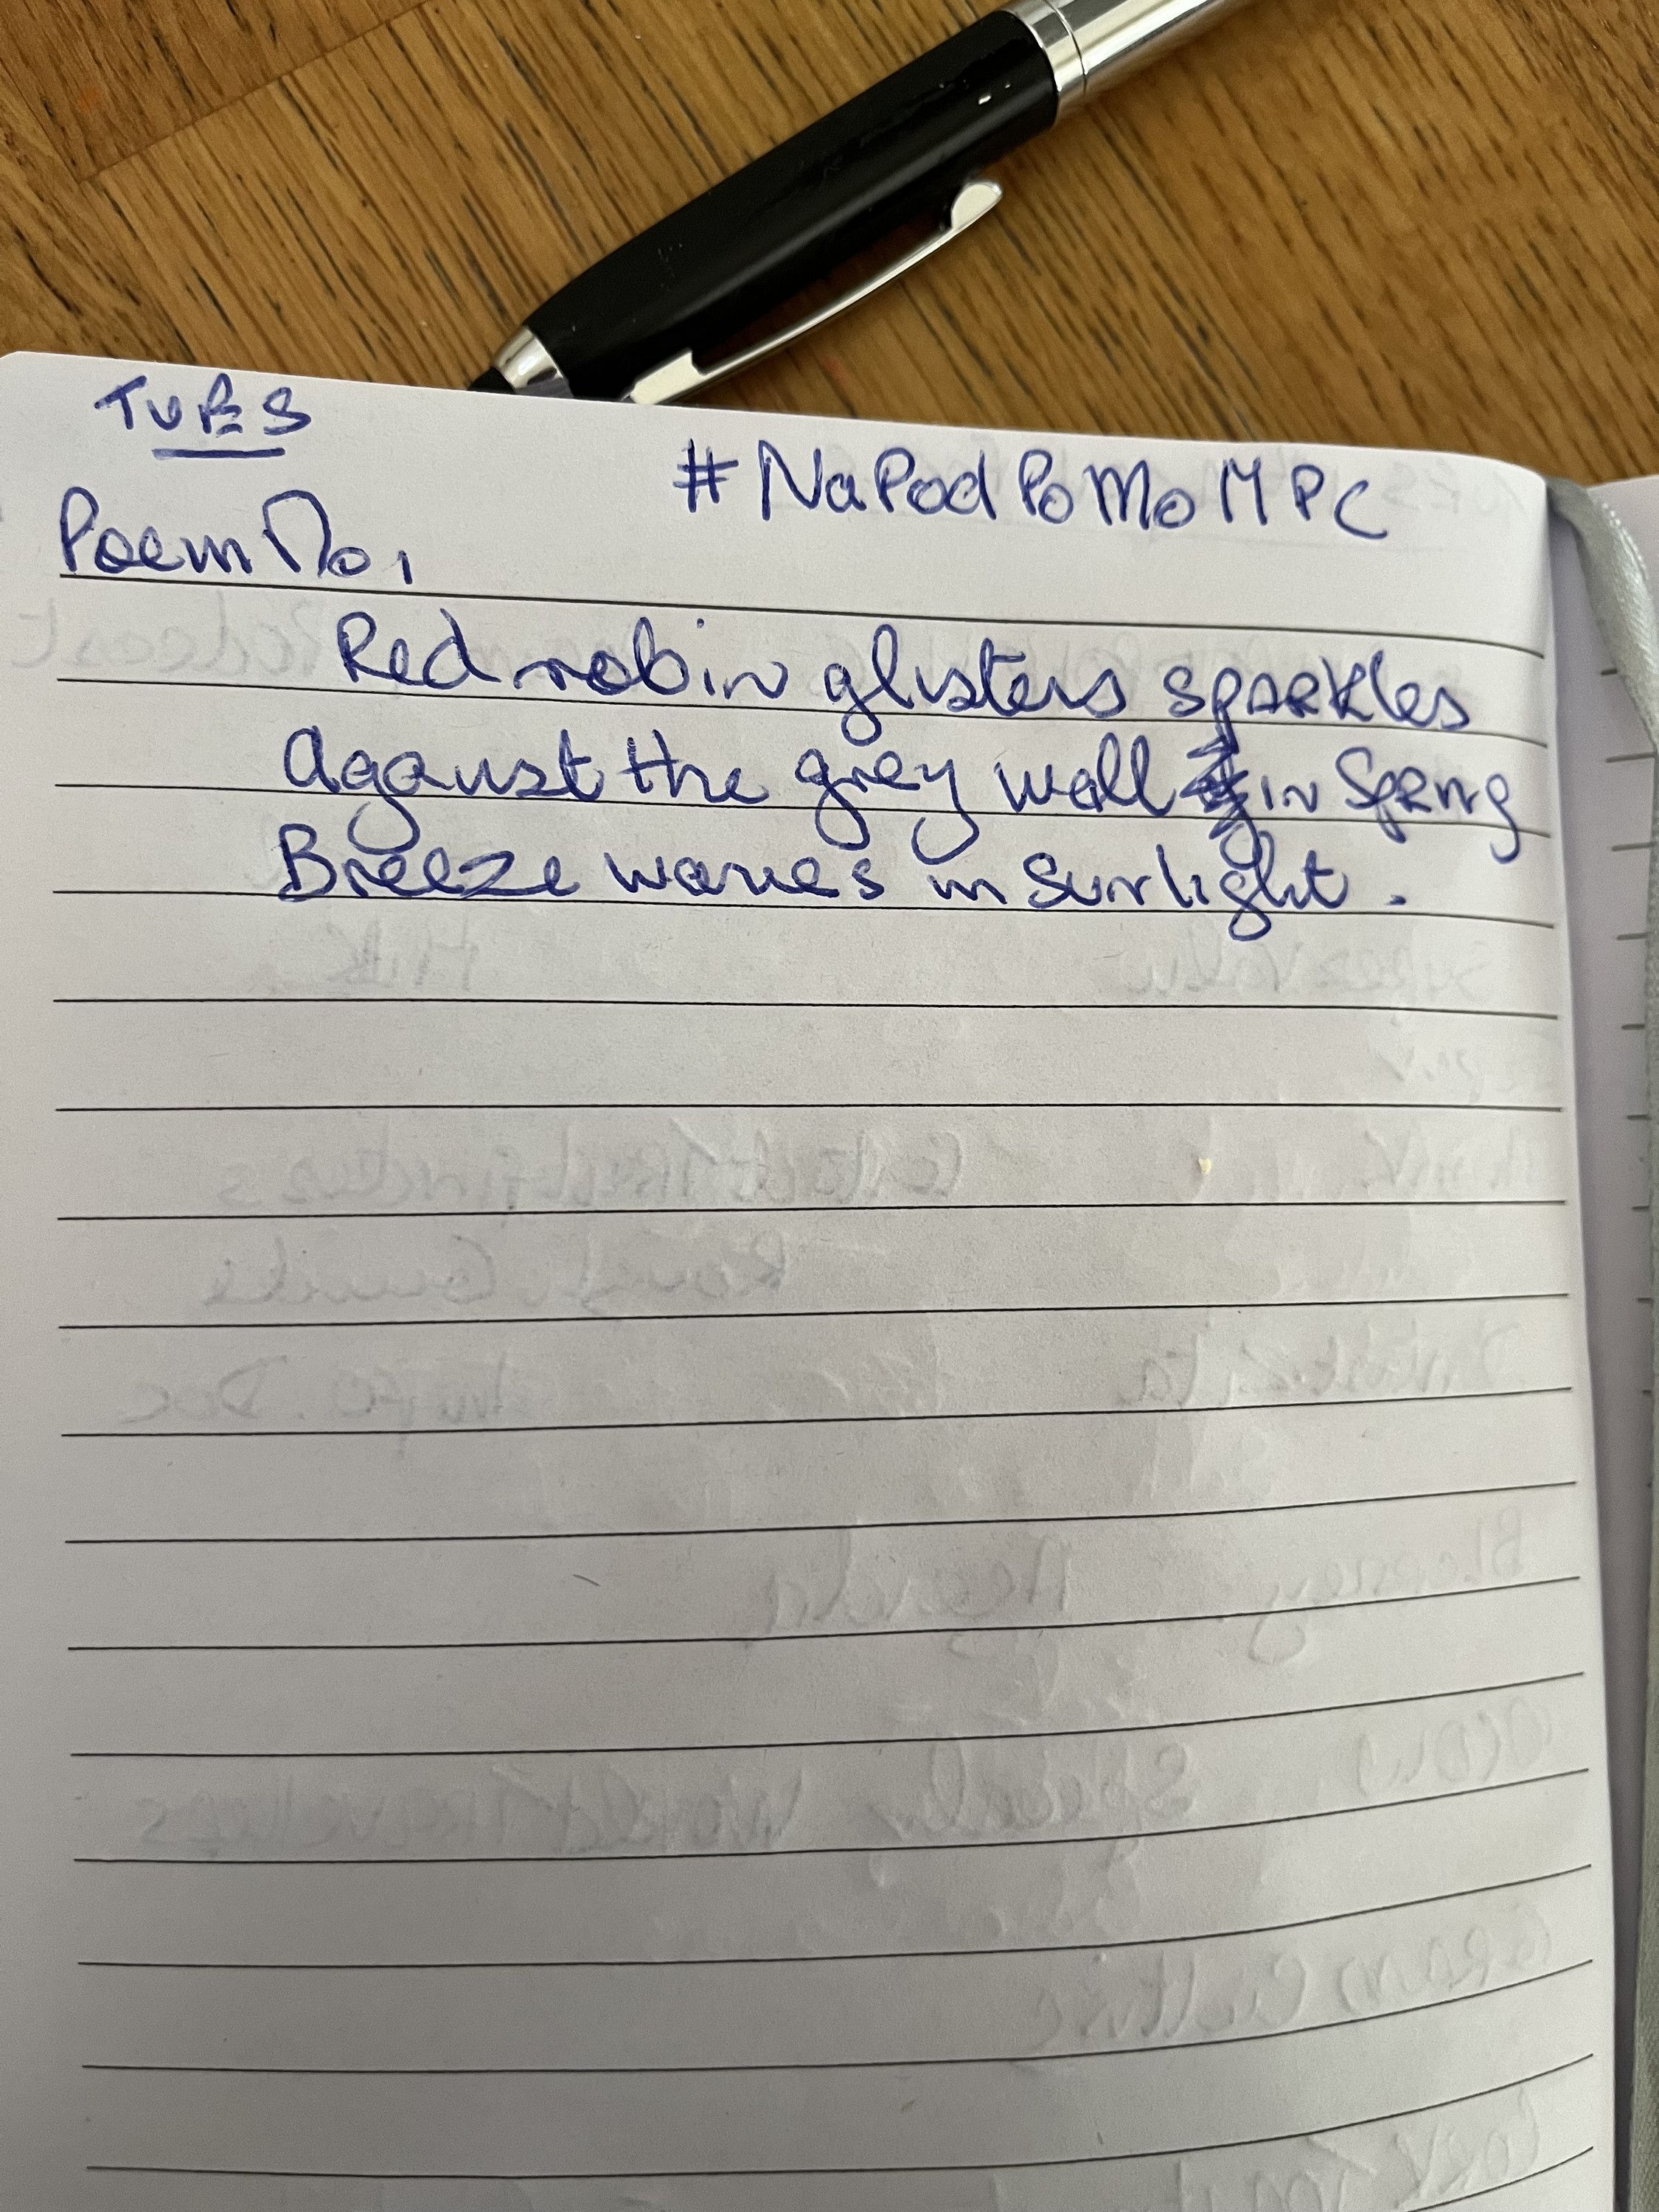 TUES
#NaPodPoMoMPC
Poem No 1
Red robin glisters sparkles
against the grey wall in Spring
Breeze waves in sunlight.